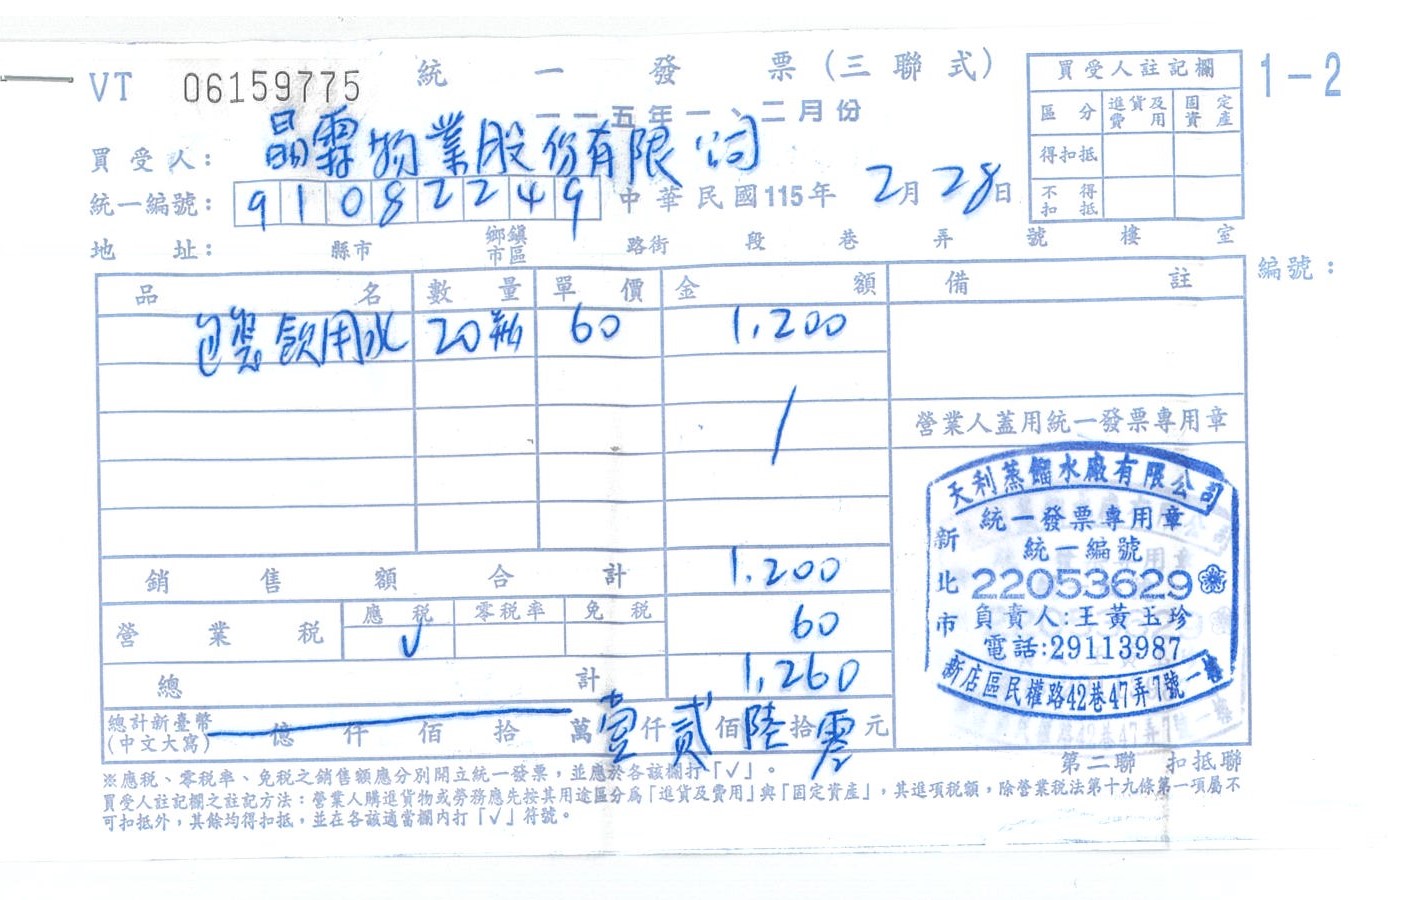 VT 06159775 統一發票(三聯式) 1-2
一一五年一、二月份
買受人: 晶霖物業股份有限公司
統一編號: 91082249 中華民國115年2月28日
地址: 縣市 鄉鎮市區 路街 段 巷 弄 號 樓 室
買受人註記欄
區分 進貨及費用 固定資產
得扣抵
不得扣抵
編號:
品名 數量 單價 金額 備註
包裝飲用水 20瓶 60 1,200
營業人蓋用統一發票專用章
銷售額合計 1,200
營業稅 應稅 ✓ 零稅率 免稅 60
總計 1,260
總計新臺幣(中文大寫) 億仟佰拾萬壹仟貳佰陸拾零元
天利蒸餾水廠有限公司
統一發票專用章
統一編號
22053629
新北市
負責人:王黃玉珍
電話:29113987
新店區民權路42巷47弄7號一樓
第二聯 扣抵聯
※應稅、零稅率、免稅之銷售額應分別開立統一發票,並應於各該欄打「✓」。
買受人註記欄之註記方法:營業人購進貨物或勞務應先按其用途區分為「進貨及費用」與「固定資產」,其進項稅額,除營業稅法第十九條第一項屬不
可扣抵外,其餘均得扣抵,並在各該適當欄內打「✓」符號。